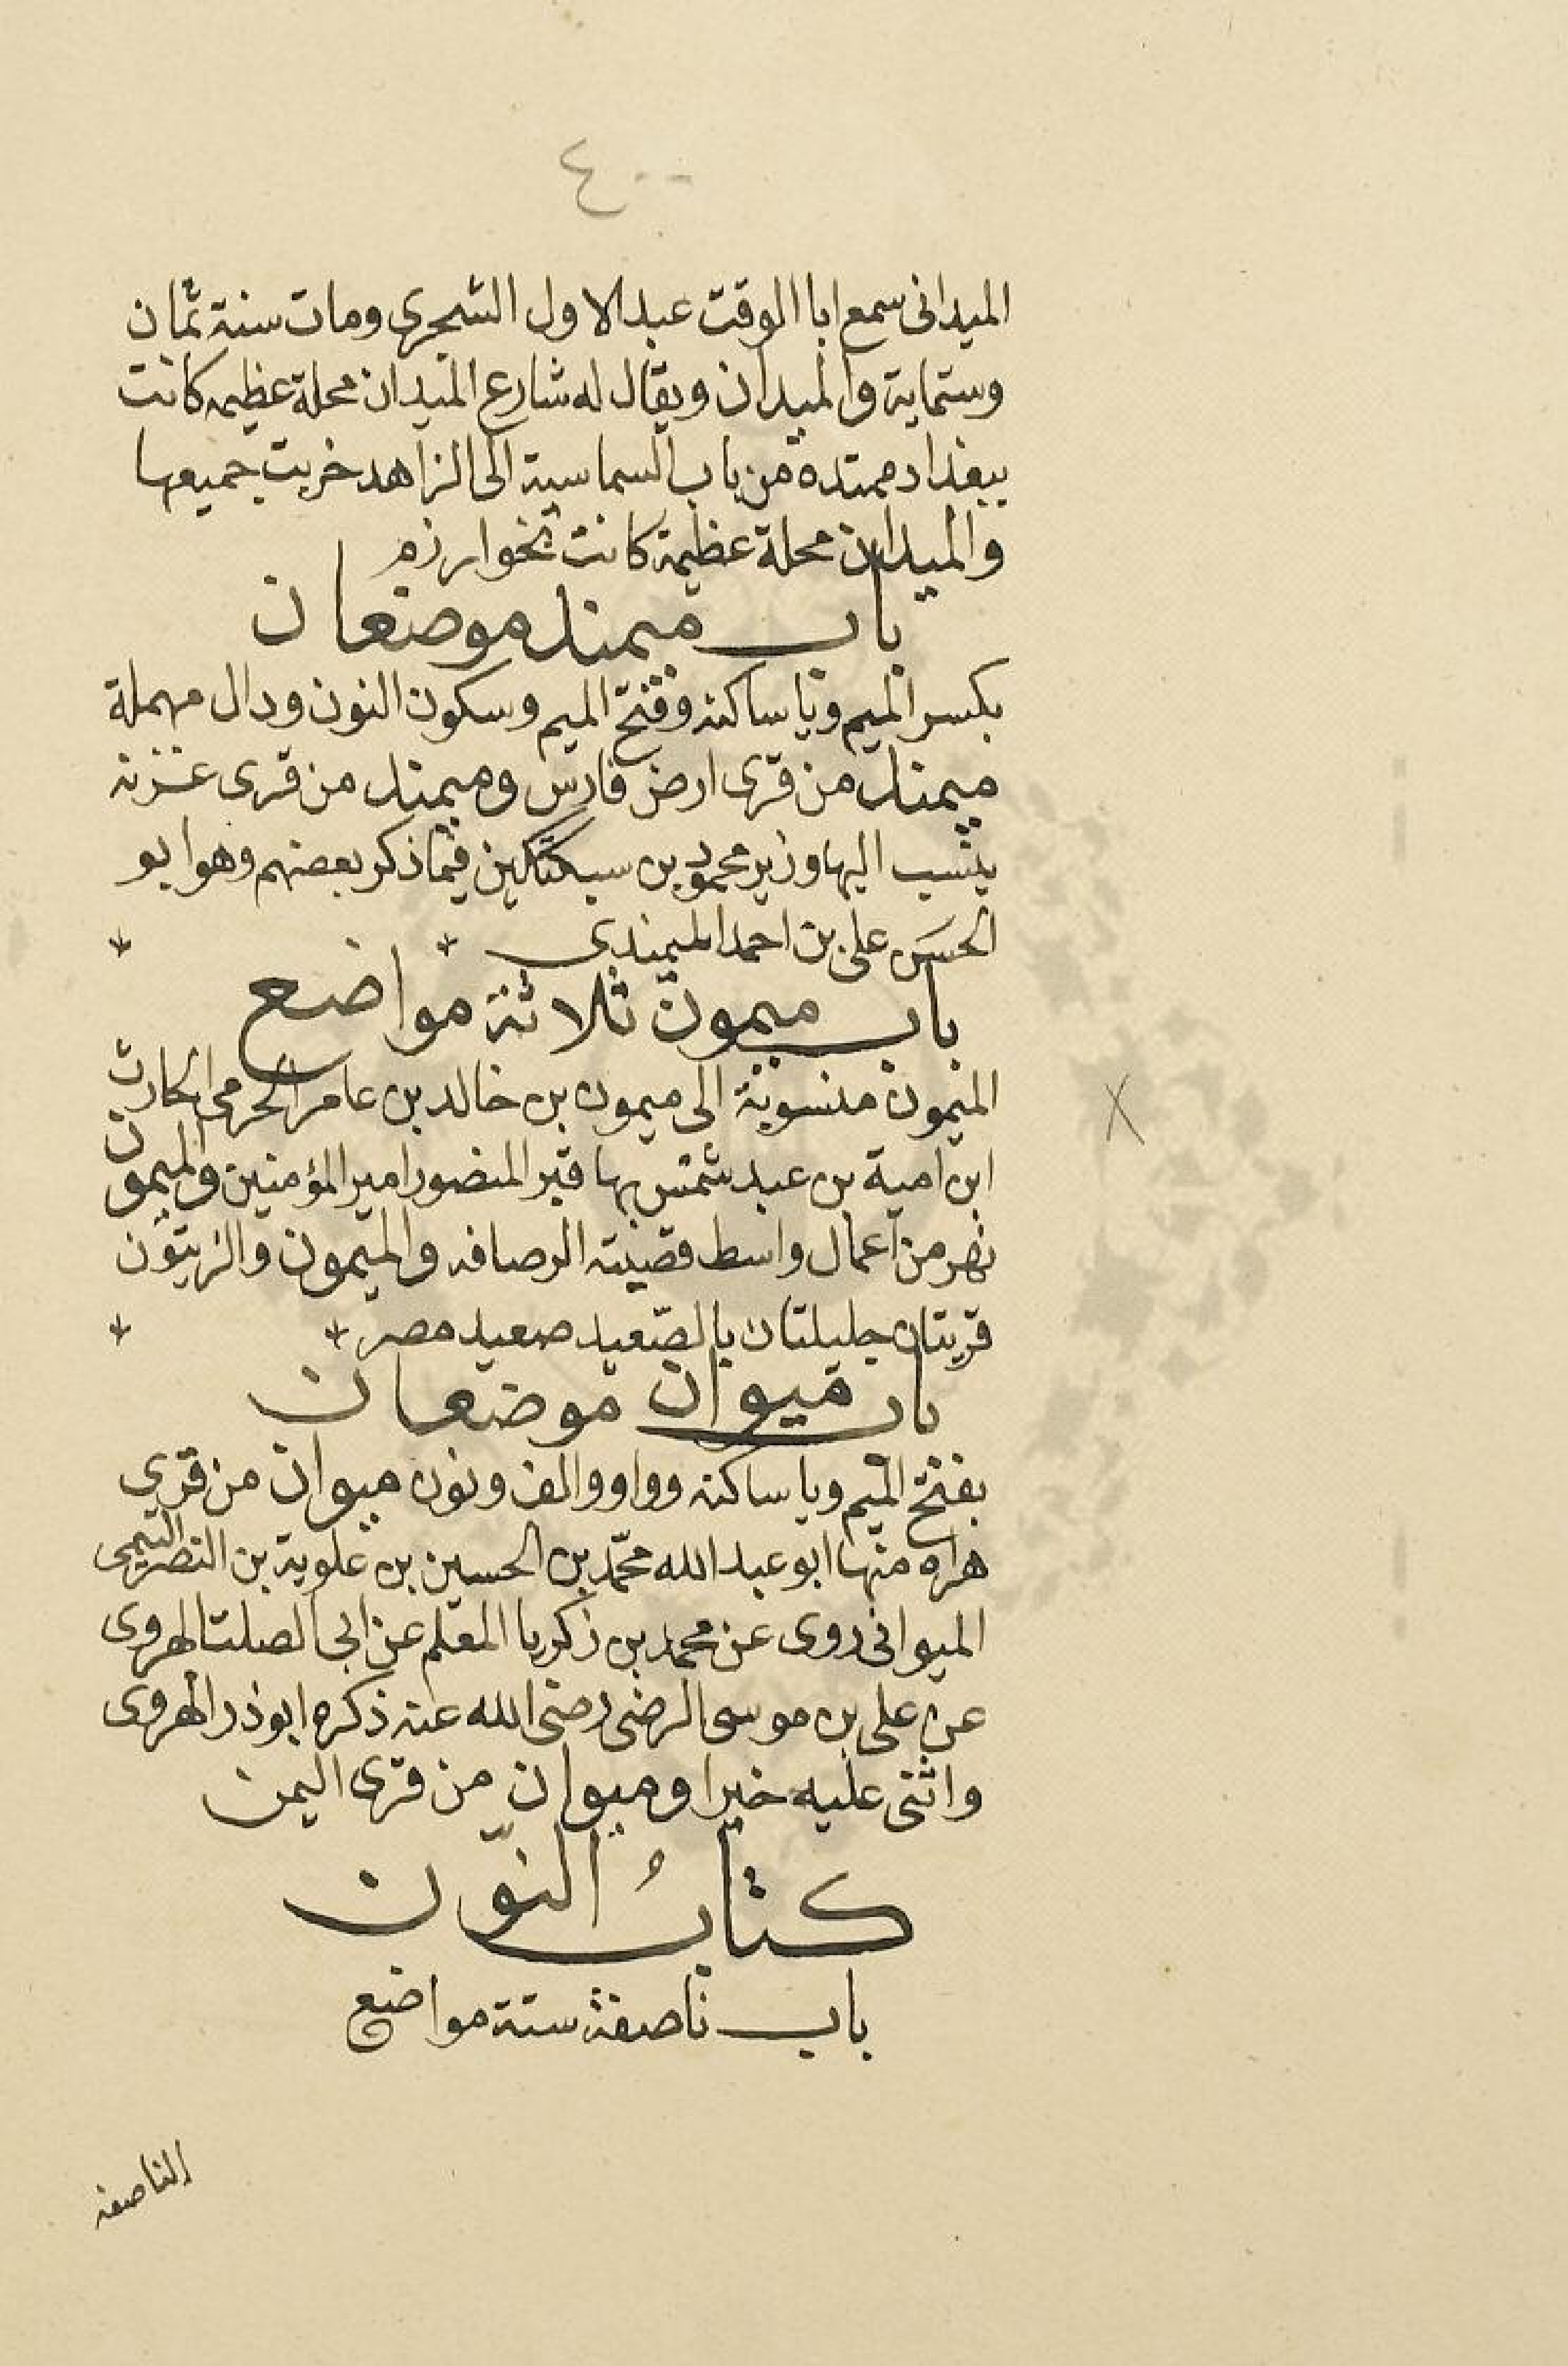 ٤٠٠
الميدانى سمع ابا الوقت عبد الاول الشجرى ومات سنة ثمان
وستماية والميدان ويقال له شارع الميدان محلة عظيمه كانت
ببغداد ممتدة من باب السماسية الى الزاهد خربت جميعها
والميدان محلة عظيمة كانت بخوارزم
باب ميمند موضعان
بكسر الميم ويا ساكنه وفتح الميم وسكون النون ودال مهملة
ميمند من قرى ارض فارس وميمند من قرى غزنه
ينسب اليها وزير محمود بن سبكتكين فيما ذكر بعضهم وهو ابو
الحسن على بن احمد الميمندى
باب ميمون ثلاثة مواضع
الميمون منسوبة الى ميمون بن خالد بن عامر الحرمى الحارث
ابن امية بن عبد شمس بها قبر المنصور امير المؤمنين والميمون
نهر من اعمال واسط قصبته الرصافه والميمون والزيتون
قريتان جليلتان بالصّعيد صعيد مصر
باب ميوان موضعان
بفتح الميم ويا ساكنه وواو والف ونون ميوان من قرى
هراه منها ابو عبد الله محمّد بن الحسين بن علوية بن النضر التيمى
الميوانى روى عن محمد بن زكريا المعلم عن ابى الصلت الهروى
عن على بن موسى الرضى رضى الله عنه ذكره ابو ذر الهروى
واثنى عليه خيرا وميوان من قرى اليمن
كتابُ النّون
باب ناصفة ستة مواضع
الناصفه